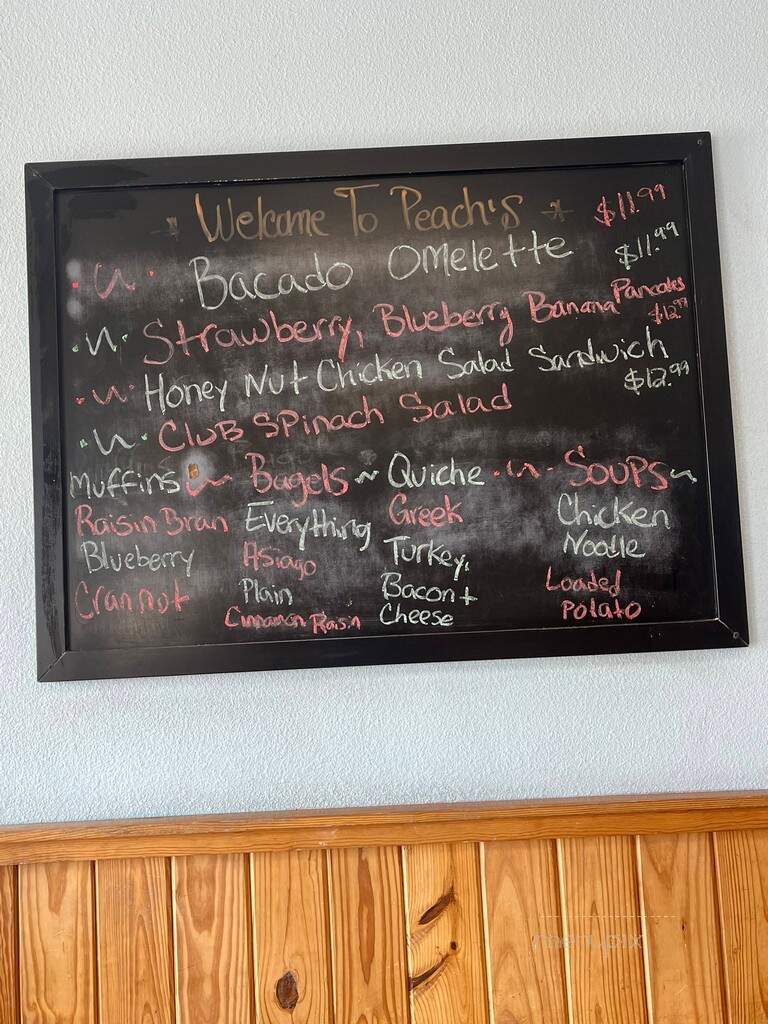 Welcome To Peach's
$11.99
Bacado Omelette $11.99
Strawberry, Blueberry Banana Pancakes
$12.99
Honey Nut Chicken Salad Sandwich
$12.99
Club Spinach Salad
Muffins Bagels ~ Quiche Soups ~
Raisin Bran Everything Greek Chicken
Blueberry Asiago Turkey, Noodle
Crannut Plain Bacon + Loaded
Cinnamon Raisin Cheese Potato
menupix